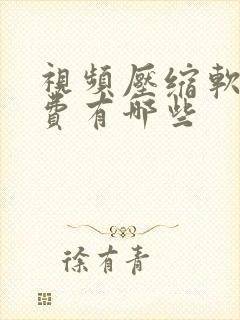 視頻壓縮軟
費有哪些
徐有青